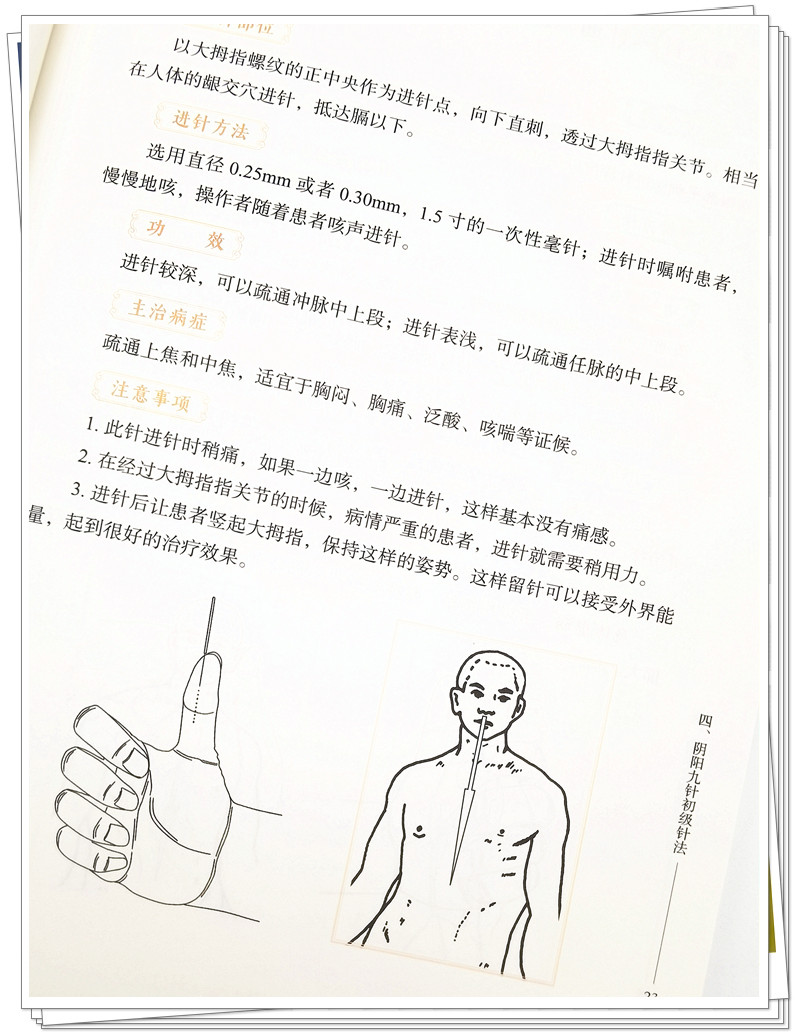 部位
以大拇指螺纹的正中央作为进针点，向下直刺，透过大拇指指关节。相当
在人体的龈交穴进针，抵达膈以下。
进针方法
选用直径 0.25mm 或者 0.30mm，1.5 寸的一次性毫针；进针时嘱咐患者，
慢慢地咳，操作者随着患者咳声进针。
功 效
进针较深，可以疏通冲脉中上段；进针表浅，可以疏通任脉的中上段。
主治病症
疏通上焦和中焦，适宜于胸闷、胸痛、泛酸、咳喘等证候。
注意事项
1. 此针进针时稍痛，如果一边咳，一边进针，这样基本没有痛感。
2. 在经过大拇指指关节的时候，病情严重的患者，进针就需要稍用力。
3. 进针后让患者竖起大拇指，保持这样的姿势。这样留针可以接受外界能
量，起到很好的治疗效果。
四、阴阳九针初级针法